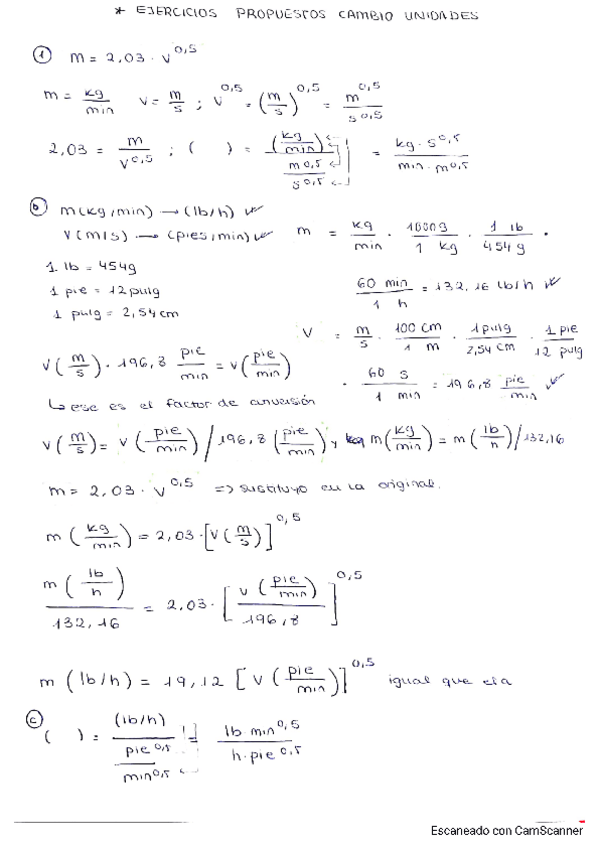 * EJERCICIOS PROPUESTOS CAMBIO UNIDADES
① m = 2,03 · v^0,5
m = kg/min v = m/s ; v^0,5 = (m/s)^0,5 = m^0,5/s^0,5
2,03 = m/v^0,5 ; ( ) = (kg/min)/(m^0,5/s^0,5) = kg · s^0,5/min · m^0,5
ⓑ m(kg/min) → (lb/h) ✓
v(m/s) → (pies/min) ✓
m = kg/min · 1000g/1 kg · 1 lb/454 g ·
60 min/1 h = 132,16 lb/h ✓
1 lb = 454g
1 pie = 12 pulg
1 pulg = 2,54 cm
v = m/s · 100 cm/1 m · 1 pulg/2,54 cm · 1 pie/12 pulg
· 60 s/1 min = 196,8 pie/min ✓
v(m/s) · 196,8 pie/min = v(pie/min)
↳ ese es el factor de conversión
v(m/s) = v(pie/min)/196,8(pie/min) y m(kg/min) = m(lb/h)/132,16
m = 2,03 · v^0,5 => sustituyo en la original.
m(kg/min) = 2,03 · [v(m/s)]^0,5
m(lb/h)/132,16 = 2,03 · [v(pie/min)/196,8]^0,5
m (lb/h) = 19,12 [v(pie/min)]^0,5 igual que
ⓒ ( ) = (lb/h)/(pie^0,5/min^0,5) = lb · min^0,5/h · pie^0,5
Escaneado con CamScanner